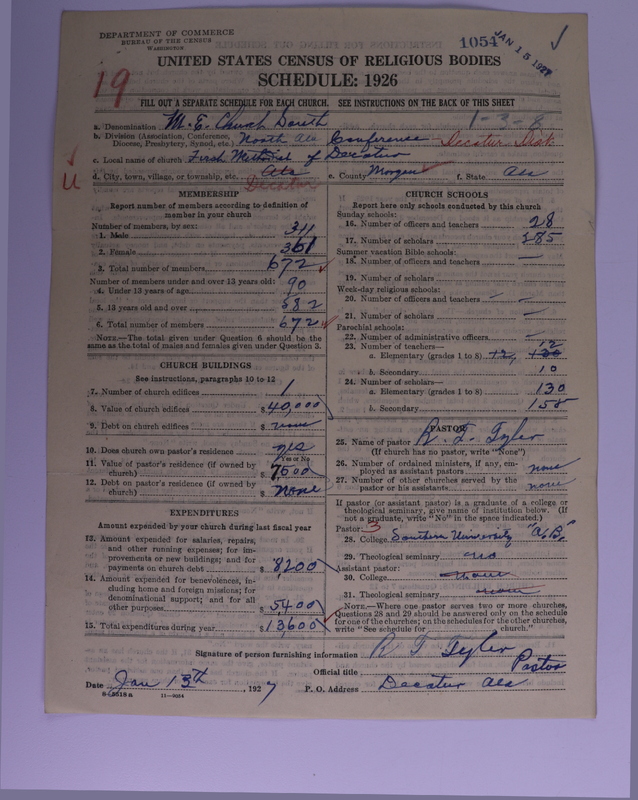 DEPARTMENT OF COMMERCE
BUREAU OF THE CENSUS
WASHINGTON
1054
JAN 15 1927
UNITED STATES CENSUS OF RELIGIOUS BODIES
SCHEDULE: 1926
19
FILL OUT A SEPARATE SCHEDULE FOR EACH CHURCH. SEE INSTRUCTIONS ON THE BACK OF THIS SHEET
1-3-8
a. Denomination M. E. Church South
b. Division (Association, Conference, Diocese, Presbytery, Synod, etc.) North Ala Conference Decatur Dist
c. Local name of church First Methodist of Decatur
d. City, town, village, or township, etc. Ala Decatur e. County Morgan f. State Ala
MEMBERSHIP
Report number of members according to definition of
member in your church
Number of members, by sex:
1. Male 311
2. Female 361
3. Total number of members 672
Number of members under and over 13 years old:
4. Under 13 years of age 90
5. 13 years old and over 582
6. Total number of members 672
NOTE.—The total given under Question 6 should be the
same as the total of males and females given under Question 3.
CHURCH BUILDINGS
See instructions, paragraphs 10 to 12
7. Number of church edifices 1
8. Value of church edifices $ 40,000
9. Debt on church edifices $ none
10. Does church own pastor's residence? yes
Yes or No
11. Value of pastor's residence (if owned by
church) $ 7500
12. Debt on pastor's residence (if owned by
church) $ none
EXPENDITURES
Amount expended by your church during last fiscal year
13. Amount expended for salaries, repairs,
and other running expenses; for im-
provements or new buildings; and for
payments on church debt $ 8,200
14. Amount expended for benevolences, in-
cluding home and foreign missions; for
denominational support; and for all
other purposes $ 5400
15. Total expenditures during year $ 13,600
CHURCH SCHOOLS
Report here only schools conducted by this church
Sunday schools:
16. Number of officers and teachers 28
17. Number of scholars 285
Summer vacation Bible schools:
18. Number of officers and teachers —
19. Number of scholars —
Week-day religious schools:
20. Number of officers and teachers —
21. Number of scholars —
Parochial schools:
22. Number of administrative officers —
23. Number of teachers—
a. Elementary (grades 1 to 8) 12, 130 12
b. Secondary 10
24. Number of scholars—
a. Elementary (grades 1 to 8) 130
b. Secondary 155
PASTOR
25. Name of pastor R. T. Tyler
(If church has no pastor, write "None")
26. Number of ordained ministers, if any, em-
ployed as assistant pastors none
27. Number of other churches served by the
pastor or his assistants none
If pastor (or assistant pastor) is a graduate of a college or
theological seminary, give name of institution below. (If
not a graduate, write "No" in the space indicated.)
Pastor: 3
28. College Southern University "A.B."
29. Theological seminary no
Assistant pastor:
30. College none
31. Theological seminary none
NOTE.—Where one pastor serves two or more churches,
Questions 28 and 29 should be answered only on the schedule
for one of the churches; on the schedules for the other churches,
write "See schedule for church."
Signature of person furnishing information R T Tyler
Official title Pastor
Date Jan 13th, 1927 P. O. Address Decatur Ala
8-5518a 11-9034